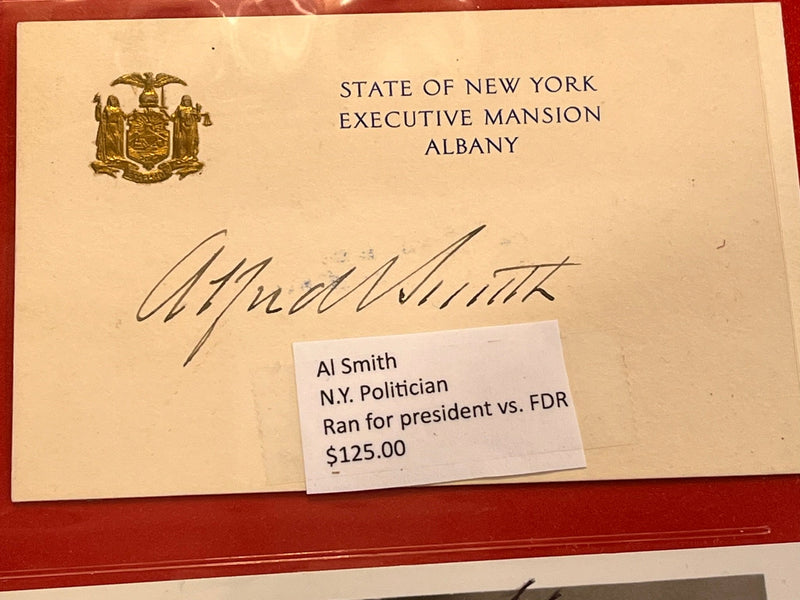 STATE OF NEW YORK
EXECUTIVE MANSION
ALBANY
Alfred E Smith
Al Smith
N.Y. Politician
Ran for president vs. FDR
$125.00